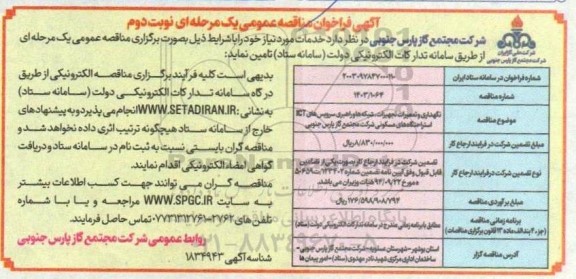 آگهی فراخوان مناقصه عمومی یک مرحله ای نوبت دوم
شرکت مجتمع گاز پارس جنوبی در نظر دارد خدمات مورد نیاز خود را با شرایط ذیل بصورت برگزاری مناقصه عمومی یک مرحله ای
از طریق سامانه تدارکات الکترونیکی دولت (سامانه ستاد) تامین نماید:
شماره فراخوان در سامانه ستاد ایران
شماره مناقصه
۱۴۰۳/۱۰۶۴
موضوع مناقصه
نگهداری و تعمیرات تجهیزات، شبکه و راهبری سرویس های ICT
استراحتگاه های مسکونی شرکت مجتمع گاز پارس جنوبی
مبلغ تضمین شرکت در فرایند ارجاع کار
نوع تضمین شرکت در فرایند ارجاع کار
تضمین شرکت در فرایند ارجاع کار بصورت یکی از تضامین
قابل قبول وفق آیین نامه تضمین شماره
هیات وزیران می باشد.
مبلغ برآوردی مناقصه
برنامه زمانی مناقصه
مطابق با برنامه زمانی مندرج در سامانه تدارکات الکترونیکی دولت (ستاد)
آدرس مناقصه گزار
استان بوشهر - شهرستان عسلویه - شرکت مجتمع گاز پارس جنوبی -
ساختمان اداری مرکزی شهید نادر مهدوی (ستاد) - امور پیمان ها
بدیهی است کلیه فرآیند برگزاری مناقصه الکترونیکی از طریق
درگاه سامانه تدارکات الکترونیکی دولت (سامانه ستاد)
به نشانی: WWW.SETADIRAN.IR انجام می پذیرد و به پیشنهادهای
خارج از سامانه ستاد هیچگونه ترتیب اثری داده نخواهد شد و
مناقصه گران بایستی نسبت به ثبت نام در سامانه ستاد و دریافت
گواهی امضاء الکترونیکی اقدام نمایند.
مناقصه گران می توانند جهت کسب اطلاعات بیشتر
به سایت WWW.SPGC.IR مراجعه و یا با شماره
تماس حاصل فرمایند.
روابط عمومی شرکت مجتمع گاز پارس جنوبی
شناسه آگهی ۱۸۳۴۹۴۳